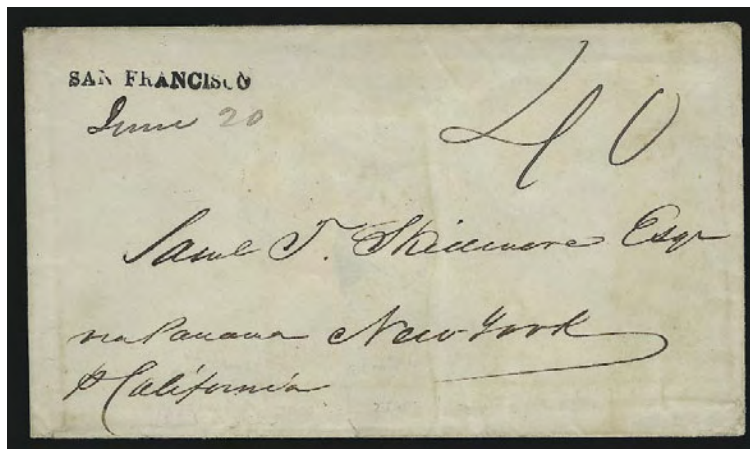 SAN FRANCISCO
June 20
40
Saml T. Skidmore Esqr
via Panama New York
p California